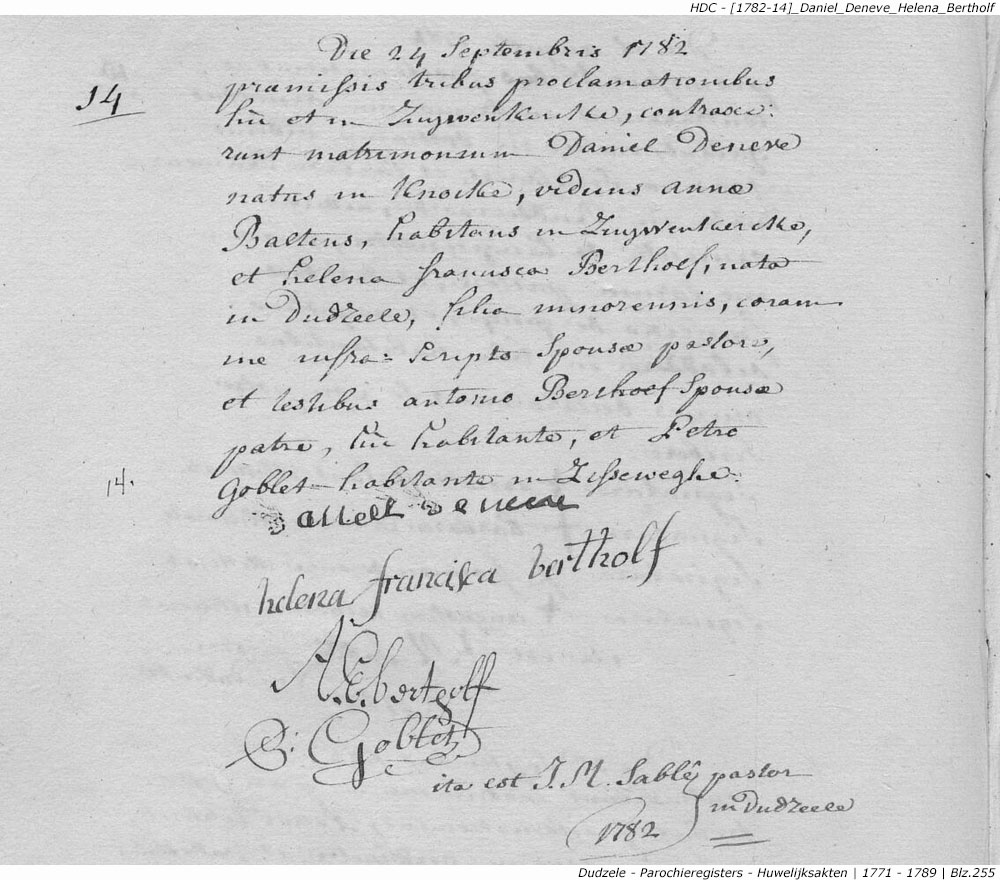 HDC - [1782-14]_Daniel_Deneve_Helena_Bertholf
Die 24 Septembris 1782
14
præmissis tribus proclamationibus
hic et in Zuijwenkercke, contraxe:
runt matrimonium Daniel Deneve
natus in Knocke, viduus annæ
Baltens, habitans in Zuywenkercke,
et helena francisca Berthoef, nata
in Dudzeele, filia minorennis, coram
me infra-scripto Sponsæ pastore,
et testibus antonio Berthoef Sponsæ
patre, hic habitante, et Petro
14.
Goblet habitante in Lisseweghe.
helena francisca bertholf
Goblet
ita est J. M. Sablé pastor
in Dudzeele
1782
Dudzele - Parochieregisters - Huwelijksakten | 1771 - 1789 | Blz.255